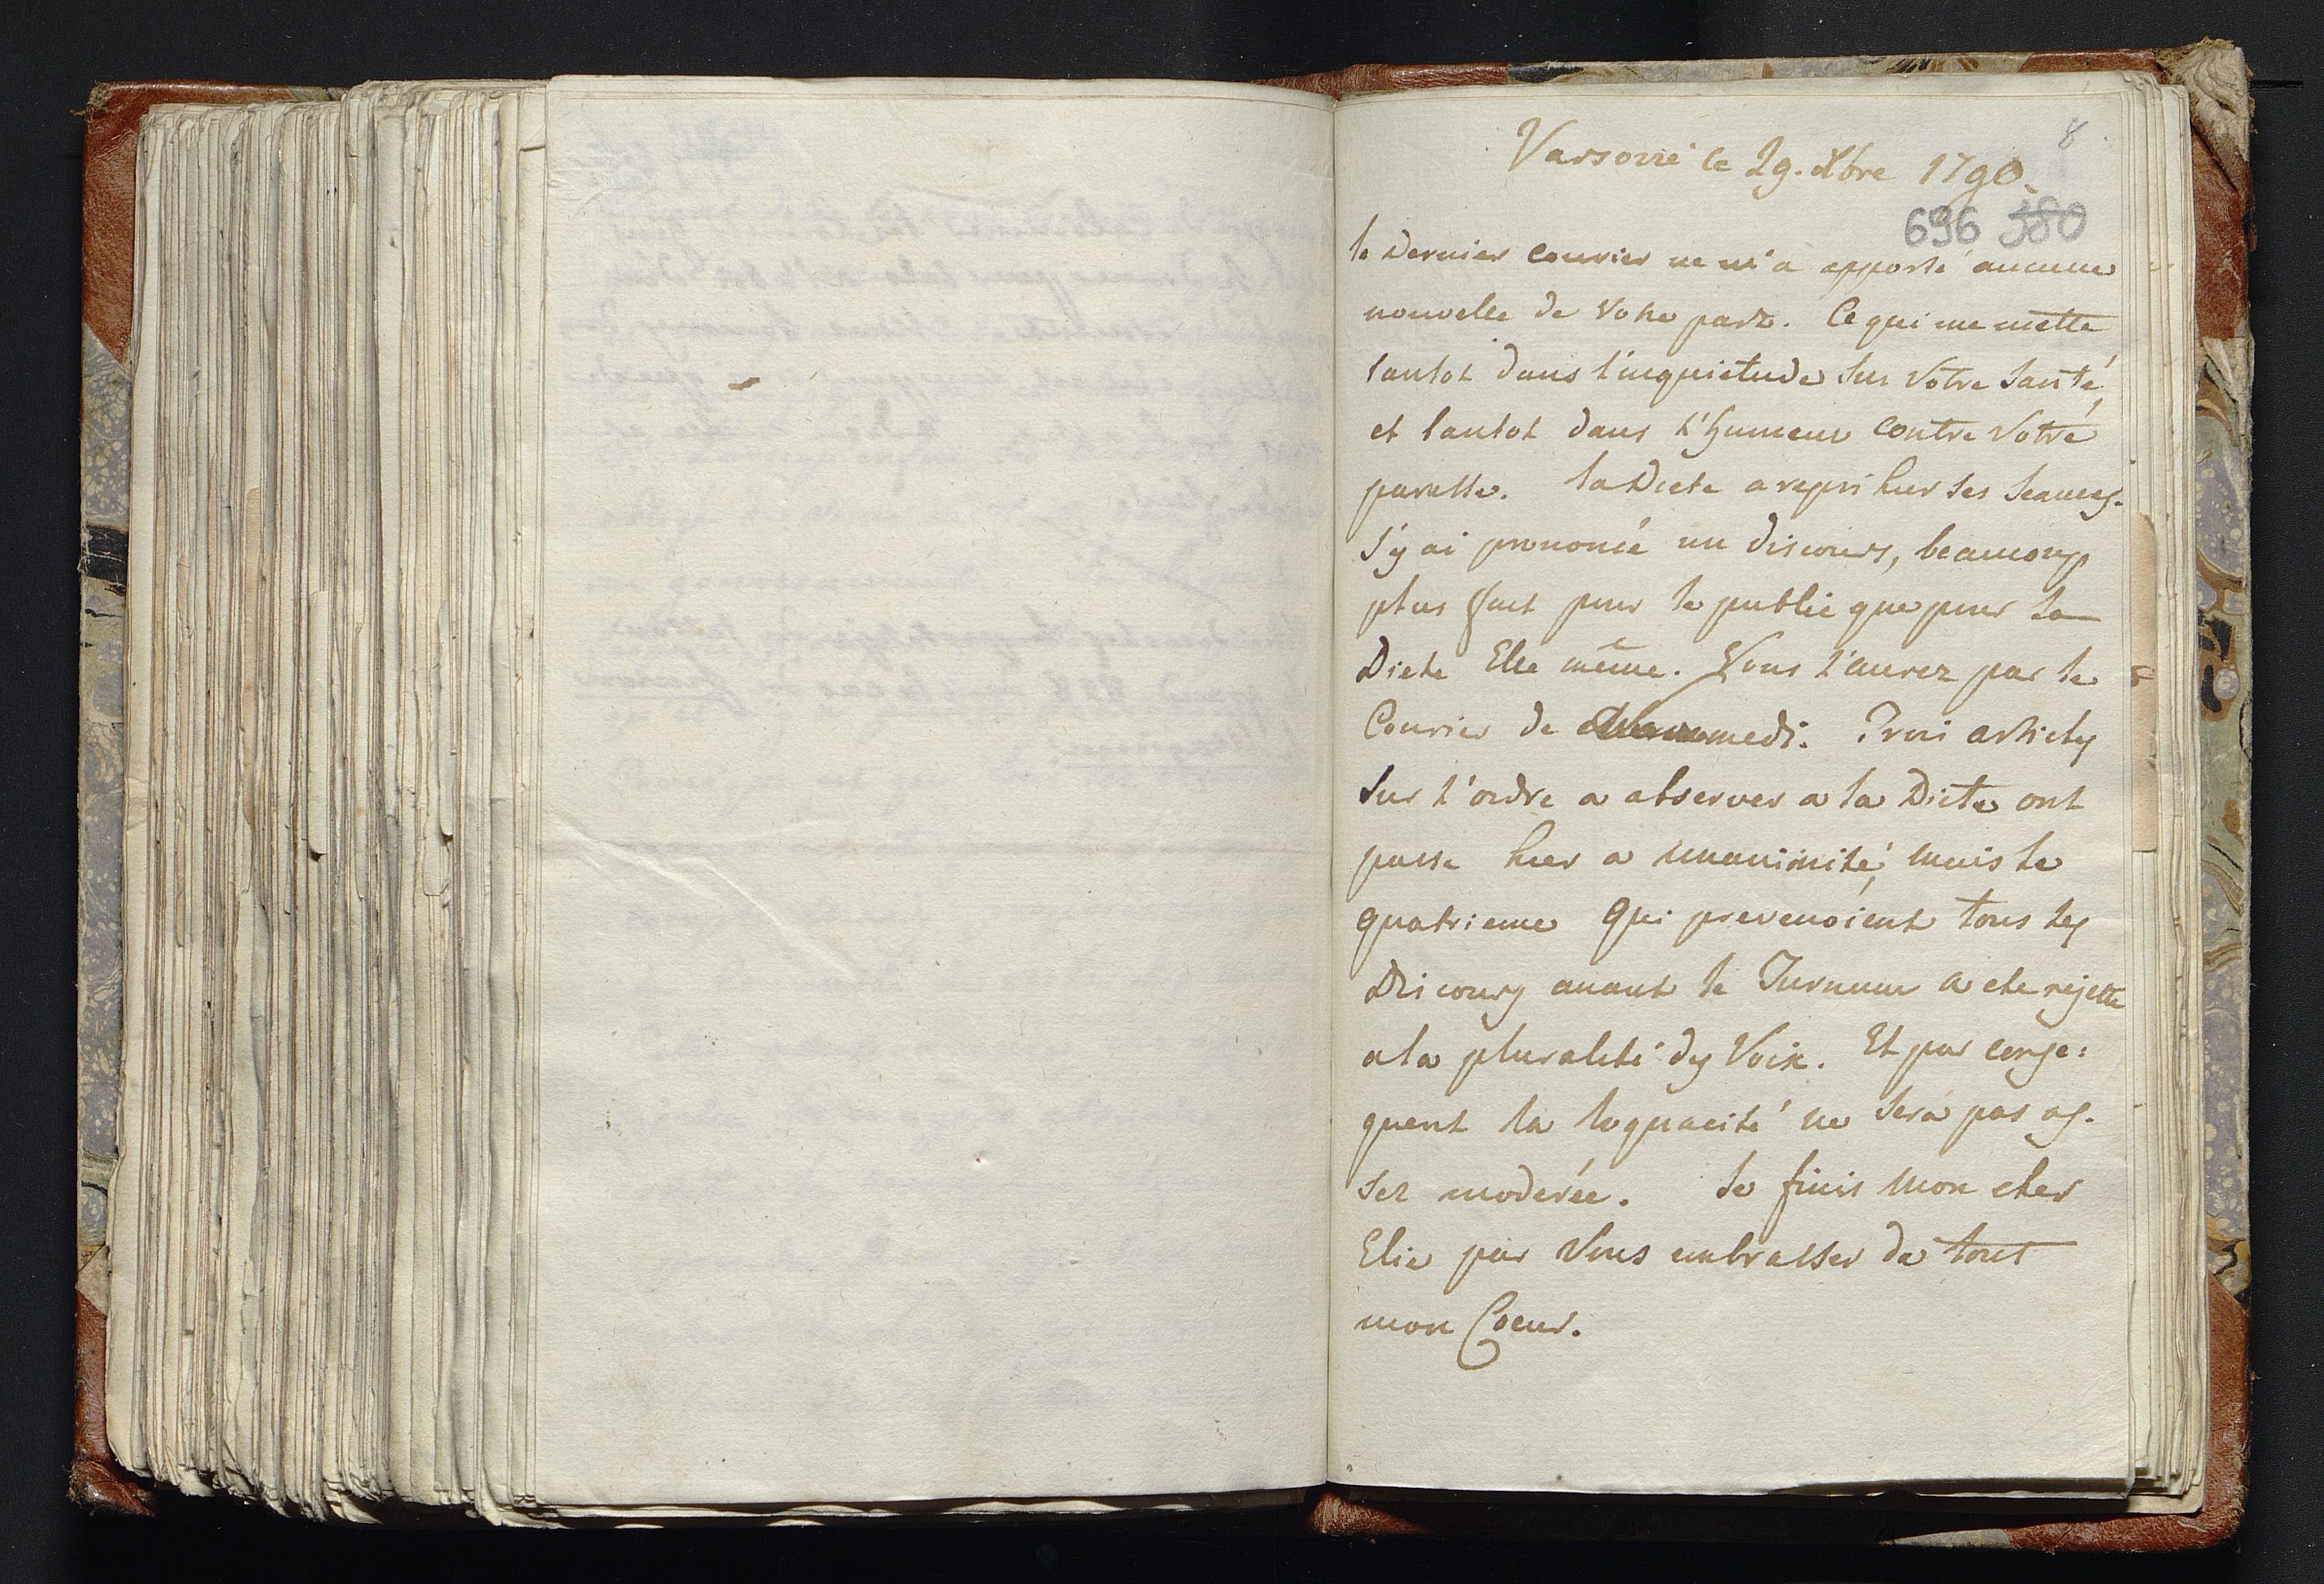 8
Varsovie le 29. Xbre 1790.
696 380
le Dernier courier ne m'a apporté aucune
nouvelle de Votre part. Ce qui me mette
tantot dans l'inquietude sur Votre Santé,
et tantot dans l'humeur contre Votre
paresse. la Diete a repri hier ses seances.
J'y ai prononcé un discours, beaucoup
plus fait pour le public que pour la
Diete Elle même. Vous l'aurez par le
Courier de medi. Troi articles
Sur l'ordre a observer a la Diete ont
passe hier a unanimité, mais le
quatrieme qui prevenoient tous les
Discours avant le Turnum a ete rejette
a la pluralité des Voix. Et par conse:
quent la loquacité ne sera pas as-
sez moderée. Je finis mon cher
Elie par Vous embrasser de tout
mon Coeur.